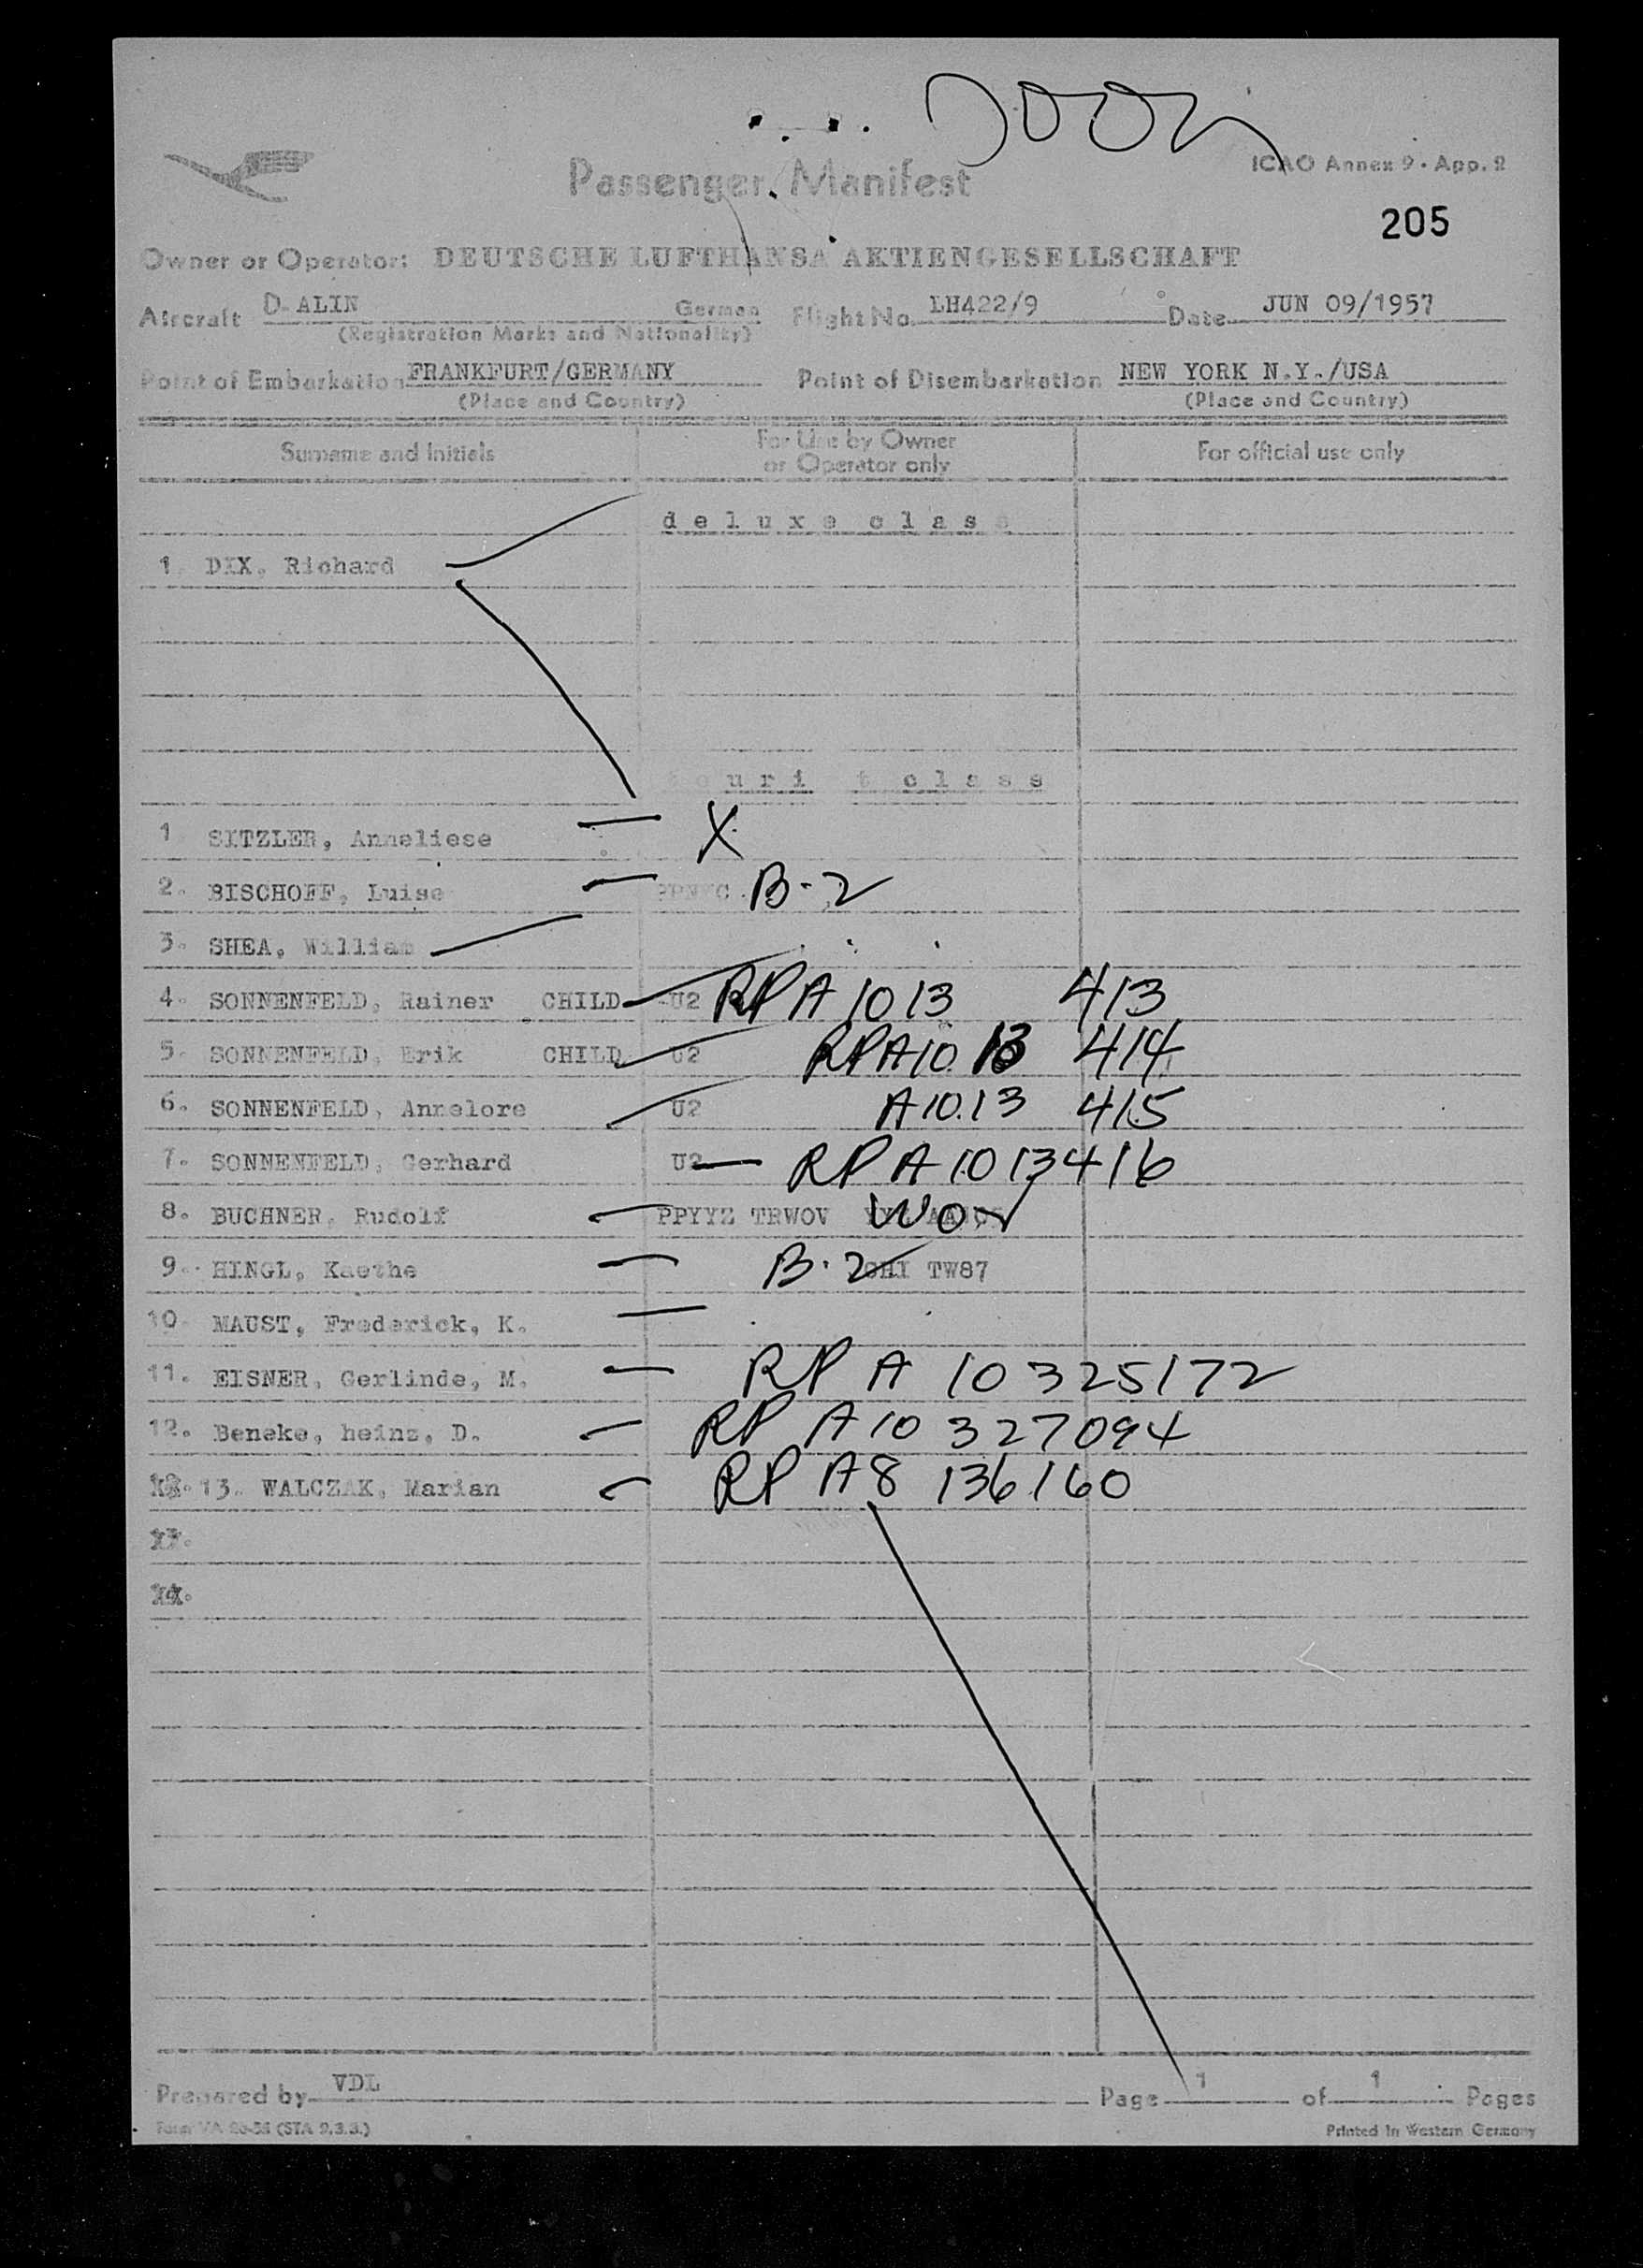 Passenger Manifest
ICAO Annex 9 · App. 2
205
Owner or Operator: DEUTSCHE LUFTHANSA AKTIENGESELLSCHAFT
Aircraft D-ALIN German Flight No. LH422/9 Date JUN 09/1957
(Registration Marks and Nationality)
Point of Embarkation FRANKFURT/GERMANY Point of Disembarkation NEW YORK N.Y./USA
(Place and Country) (Place and Country)
Surname and Initials For Use by Owner or Operator only For official use only
deluxe class
1. DIX, Richard
class
1 SITZLER, Anneliese X
2. BISCHOFF, Luise B-2
3. SHEA, William
4. SONNENFELD, Rainer CHILD U2 RP A 1013 413
5. SONNENFELD, Erik CHILD U2 RP A10 13 414
6. SONNENFELD, Annelore U2 A10.13 415
7. SONNENFELD, Gerhard U2 RP A 1013416
8. BUCHNER, Rudolf PPYYZ TRWOV WOV
9. HINGL, Kaethe B-2 CHI TW87
10. MAUST, Frederick, K.
11. EISNER, Gerlinde, M. RP A 10 325172
12. Beneke, heinz, D. RP A10 327094
13. WALCZAK, Marian RP A8 136160
Prepared by VDL Page 1 of 1 Pages
(STA 9.3.3.) Printed in Western Germany